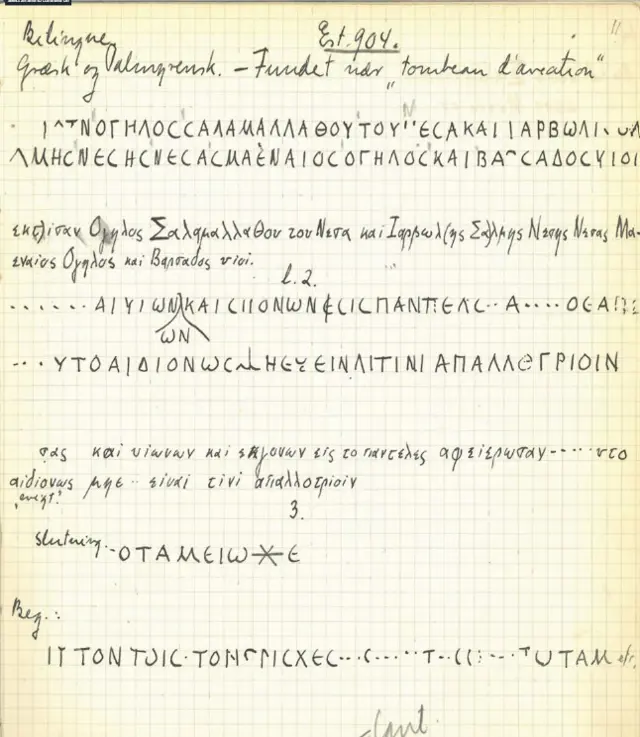 Bilingue. Est. 904. 11
Græsk og Palmyrensk. – Fundet nær "tombeau d'aviation"
ΝΟΓΗΛΟССΑΛΑΜΑΛΛΑΘΟΥΤΟΥ ΕСΑΚΑΙΙΑΡΒΩΛΙ
ΛΜΗСΝΕСΗСΝΕСΑСΜΑΕΝΑΙΟСΟΓΗΛΟСΚΑΙΒΑ СΑΔΟСΥΙΟΙ
εκτισαν Ογηλος Σαλαμαλλαθου του Νεσα και Ιαρβωλ(ης Σα)λμης Νεσης Νεσας Μα-
εναιος Ογηλος και Βαρσαδος υιοι.
l. 2.
. . . . . . ΑΙΥΙΩΝΚΑΙ ΟΝΩΝ ΕΙСΠΑΝΠΕΛС . . Α . . . . ΟΘΑ
ΩΝ
. . . ΥΤΟΑΙΔΙΟΝΩС ΗΕ ΕΙΝΛΙΤΙΝΙ ΑΠΑΛΛΘΓΡΙΟΙΝ
σας και υιωνων και εκγονων εις το παντελες αφειερωσαν - - - - υτο
αιδιονως μηε - - ειναι τινι απαλλοτριοιν
3.
Slutning. - ΟΤΑΜΕΙΩ Ε
Beg.:
ΤΟΝ ΤΩΙС · ΤΟΝ ΙСΧΕС . . . ΤΩΤΑΜ etc.